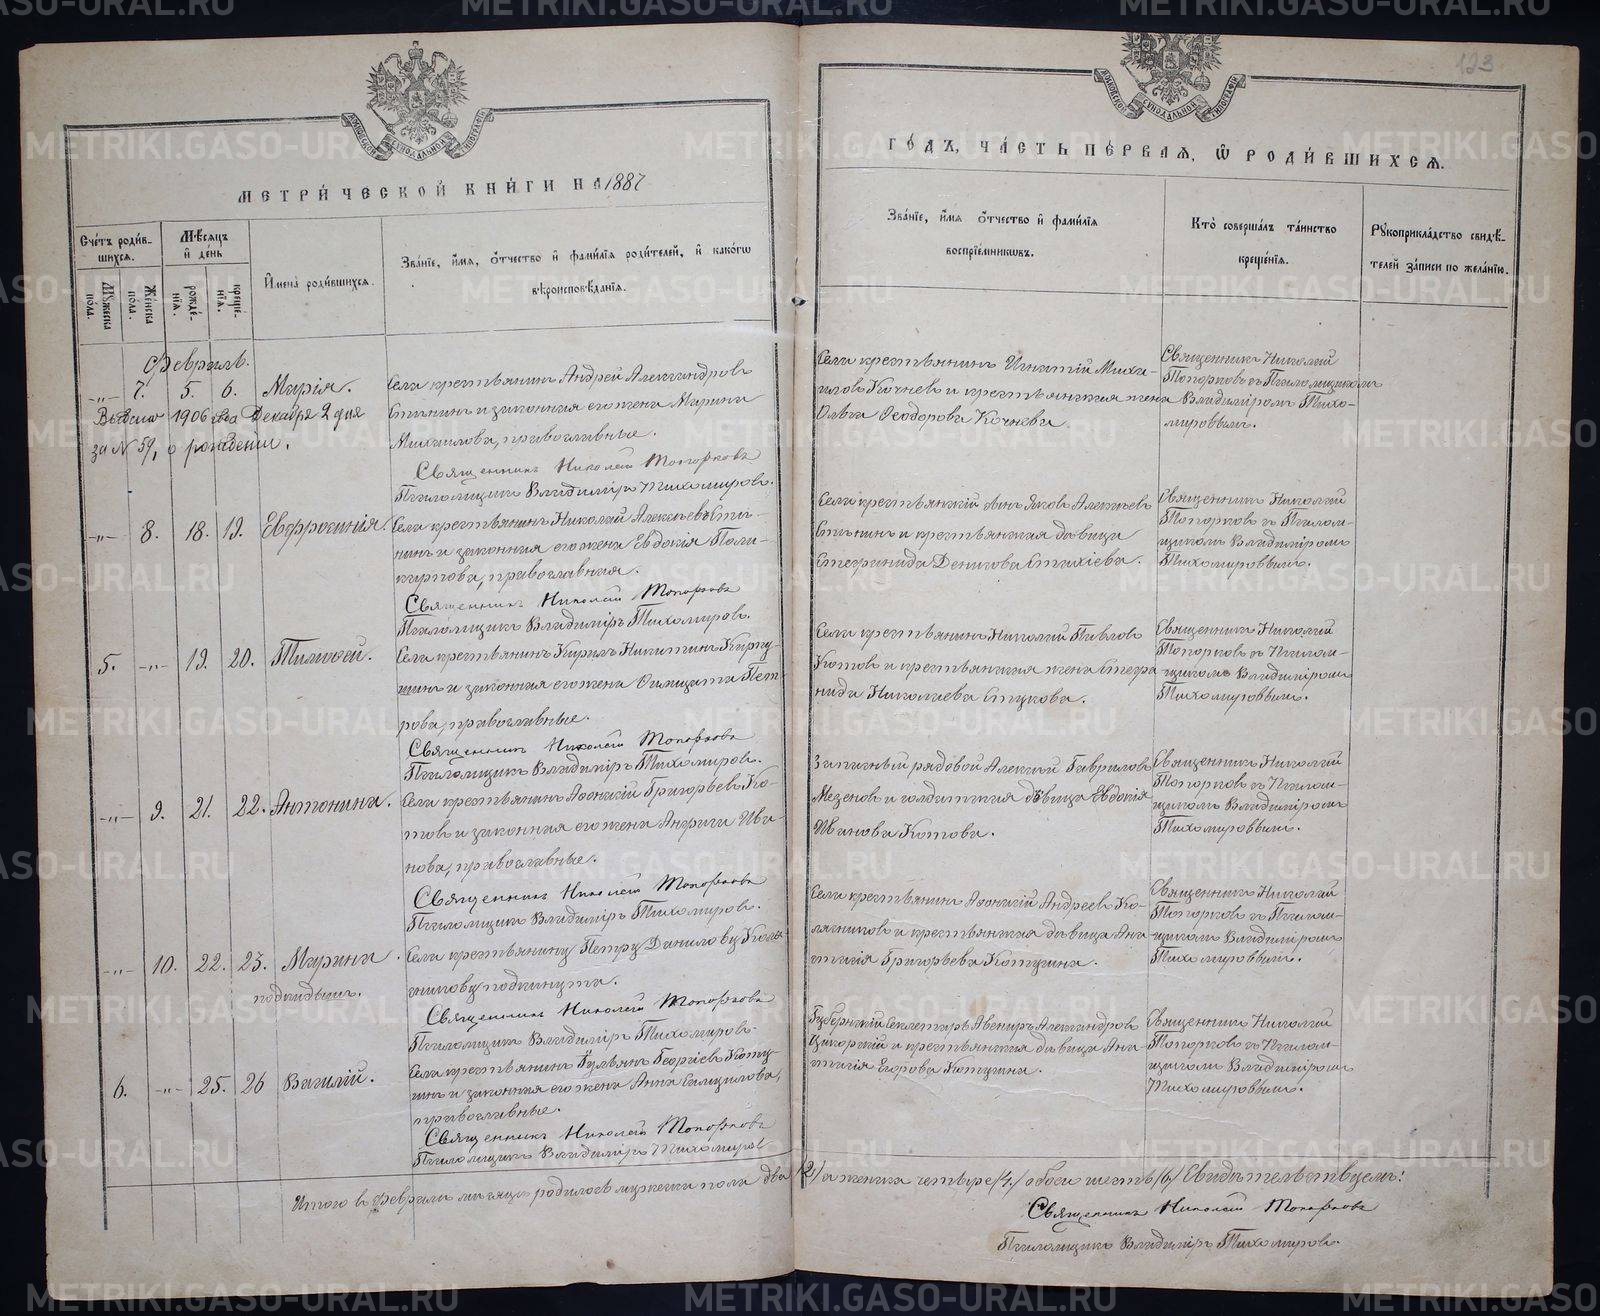 123
МЕТРИ́ЧЕСКОЙ КНИ́ГИ НА 1887
ГО́ДЪ, ЧА́СТЬ ПЕ́РВАЯ, Ѿ РОДИ́ВШИХСЯ.
Сче́тъ роди́вшихся.
Му́жеска пола.
Же́нска пола.
Мѣ́сяцъ и҆ де́нь
рожде́нїя.
креще́нїя.
И҆мена̀ роди́вшихся.
Зва́нїе, и҆́мя, ѻ҆́тчество и҆ фами́лїя роди́телей, и҆ како́гѡ
вѣроисповѣ́данїя.
Зва́нїе, и҆́мя ѻ҆́тчество и҆ фами́лїя
воспрїе́мниковъ.
Кто̀ соверша́лъ та́инство
креще́нїя.
Рукоприкла́дство свидѣ́-
телей за́писи по жела́нїю.
Февраль.
-„- 7. 5. 6. Марія.
Села крестьянинъ Андрей Александровъ
и законная его жена Марина
Михаилова, православные.
1906 Декабря 2 дня
за № 59, о рождении.
Священникъ Николай Топорковъ
Псаломщикъ Владиміръ Тихомировъ.
Села крестьянинъ Игнатій Михаи-
ловъ Кочневъ и крестьянская жена
Ольга Ѳеодорова Кочнева.
Священникъ Николай
Топорковъ съ Псаломщикомъ
Владиміромъ Тихо-
мировымъ.
-„- 8. 18. 19. Евфросинія.
Села крестьянинъ Николай Алексѣевъ
и законная его жена Евдокія Поли-
карпова, православная.
Священникъ Николай Топорковъ
Псаломщикъ Владиміръ Тихомировъ.
Села крестьянскій сынъ Яковъ Алексѣевъ
и крестьянская дѣвица
Степанида Денисова
Священникъ Николай
Топорковъ съ Псалом-
щикомъ Владиміромъ
Тихомировымъ.
5. -„- 19. 20. Тимоѳей.
Села крестьянинъ Кирилъ Никитинъ
и законная его жена Пет-
рова, православные.
Священникъ Николай Топорковъ
Псаломщикъ Владиміръ Тихомировъ.
Села крестьянинъ Николай Павловъ
Котовъ и крестьянская жена Степа-
нида Николаева
Священникъ Николай
Топорковъ съ Псалом-
щикомъ Владиміромъ
Тихомировымъ.
-„- 9. 21. 22. Антонина.
Села крестьянинъ Аѳонасій Григорьевъ Ко-
товъ и законная его жена Ива-
нова, православные.
Священникъ Николай Топорковъ
Псаломщикъ Владиміръ Тихомировъ.
Запасный рядовой Алексѣй Гавриловъ
Мезеновъ и солдатская дѣвица Евдокія
Иванова Котова.
Священникъ Николай
Топорковъ съ Псалом-
щикомъ Владиміромъ
Тихомировымъ.
-„- 10. 22. 23. Марина
подкидышъ.
Села крестьянину Петру Данилову
подкинута.
Священникъ Николай Топорковъ
Псаломщикъ Владиміръ Тихомировъ.
Села крестьянинъ Аѳонасій Андреевъ Ко-
и крестьянская дѣвица Ана-
стасія Григорьева
Священникъ Николай
Топорковъ съ Псалом-
щикомъ Владиміромъ
Тихомировымъ.
6. -„- 25. 26 Василій.
Села крестьянинъ Георгіевъ
и законная его жена Анна
православные.
Священникъ Николай Топорковъ
Псаломщикъ Владиміръ Тихомировъ
Губернскій Секретарь Авениръ Александровъ
и крестьянская дѣвица Ана-
стасія Егорова
Священникъ Николай
Топорковъ съ Псалом-
щикомъ Владиміромъ
Тихомировымъ.
Итого въ Февралѣ мѣсяцѣ родилось мужеска пола два /2/ а женска четыре /4/ обоего шесть /6/ Свидѣтельствуемъ:
Священникъ Николай Топорковъ
Псаломщикъ Владиміръ Тихомировъ.
METRIKI.GASO-URAL.RU